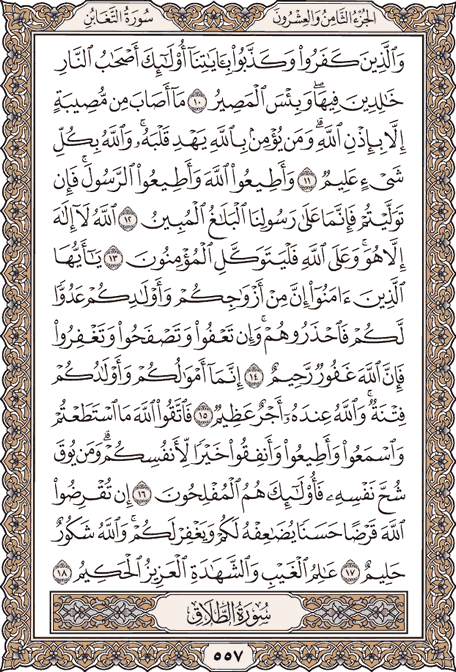 سُورَةُ التَّغَابُن
الجُزْءُ الثَّامِنُ وَالعِشْرُونَ
وَالَّذِينَ كَفَرُوا۟ وَكَذَّبُوا۟ بِـَٔايَٰتِنَآ أُو۟لَٰٓئِكَ أَصْحَٰبُ النَّارِ
خَٰلِدِينَ فِيهَا ۖ وَبِئْسَ الْمَصِيرُ ١٠ مَآ أَصَابَ مِن مُّصِيبَةٍ
إِلَّا بِإِذْنِ اللَّهِ ۗ وَمَن يُؤْمِنۢ بِاللَّهِ يَهْدِ قَلْبَهُۥ ۚ وَاللَّهُ بِكُلِّ
شَىْءٍ عَلِيمٌ ١١ وَأَطِيعُوا۟ اللَّهَ وَأَطِيعُوا۟ الرَّسُولَ ۚ فَإِن
تَوَلَّيْتُمْ فَإِنَّمَا عَلَىٰ رَسُولِنَا الْبَلَٰغُ الْمُبِينُ ١٢ اللَّهُ لَآ إِلَٰهَ
إِلَّا هُوَ ۚ وَعَلَى اللَّهِ فَلْيَتَوَكَّلِ الْمُؤْمِنُونَ ١٣ يَٰٓأَيُّهَا
الَّذِينَ ءَامَنُوٓا۟ إِنَّ مِنْ أَزْوَٰجِكُمْ وَأَوْلَٰدِكُمْ عَدُوًّا
لَّكُمْ فَاحْذَرُوهُمْ ۚ وَإِن تَعْفُوا۟ وَتَصْفَحُوا۟ وَتَغْفِرُوا۟
فَإِنَّ اللَّهَ غَفُورٌ رَّحِيمٌ ١٤ إِنَّمَآ أَمْوَٰلُكُمْ وَأَوْلَٰدُكُمْ
فِتْنَةٌ ۚ وَاللَّهُ عِندَهُۥٓ أَجْرٌ عَظِيمٌ ١٥ فَاتَّقُوا۟ اللَّهَ مَا اسْتَطَعْتُمْ
وَاسْمَعُوا۟ وَأَطِيعُوا۟ وَأَنفِقُوا۟ خَيْرًا لِّأَنفُسِكُمْ ۗ وَمَن يُوقَ
شُحَّ نَفْسِهِۦ فَأُو۟لَٰٓئِكَ هُمُ الْمُفْلِحُونَ ١٦ إِن تُقْرِضُوا۟
اللَّهَ قَرْضًا حَسَنًا يُضَٰعِفْهُ لَكُمْ وَيَغْفِرْ لَكُمْ ۚ وَاللَّهُ شَكُورٌ
حَلِيمٌ ١٧ عَٰلِمُ الْغَيْبِ وَالشَّهَٰدَةِ الْعَزِيزُ الْحَكِيمُ ١٨
سُورَةُ الطَّلَاقِ
٥٥٧